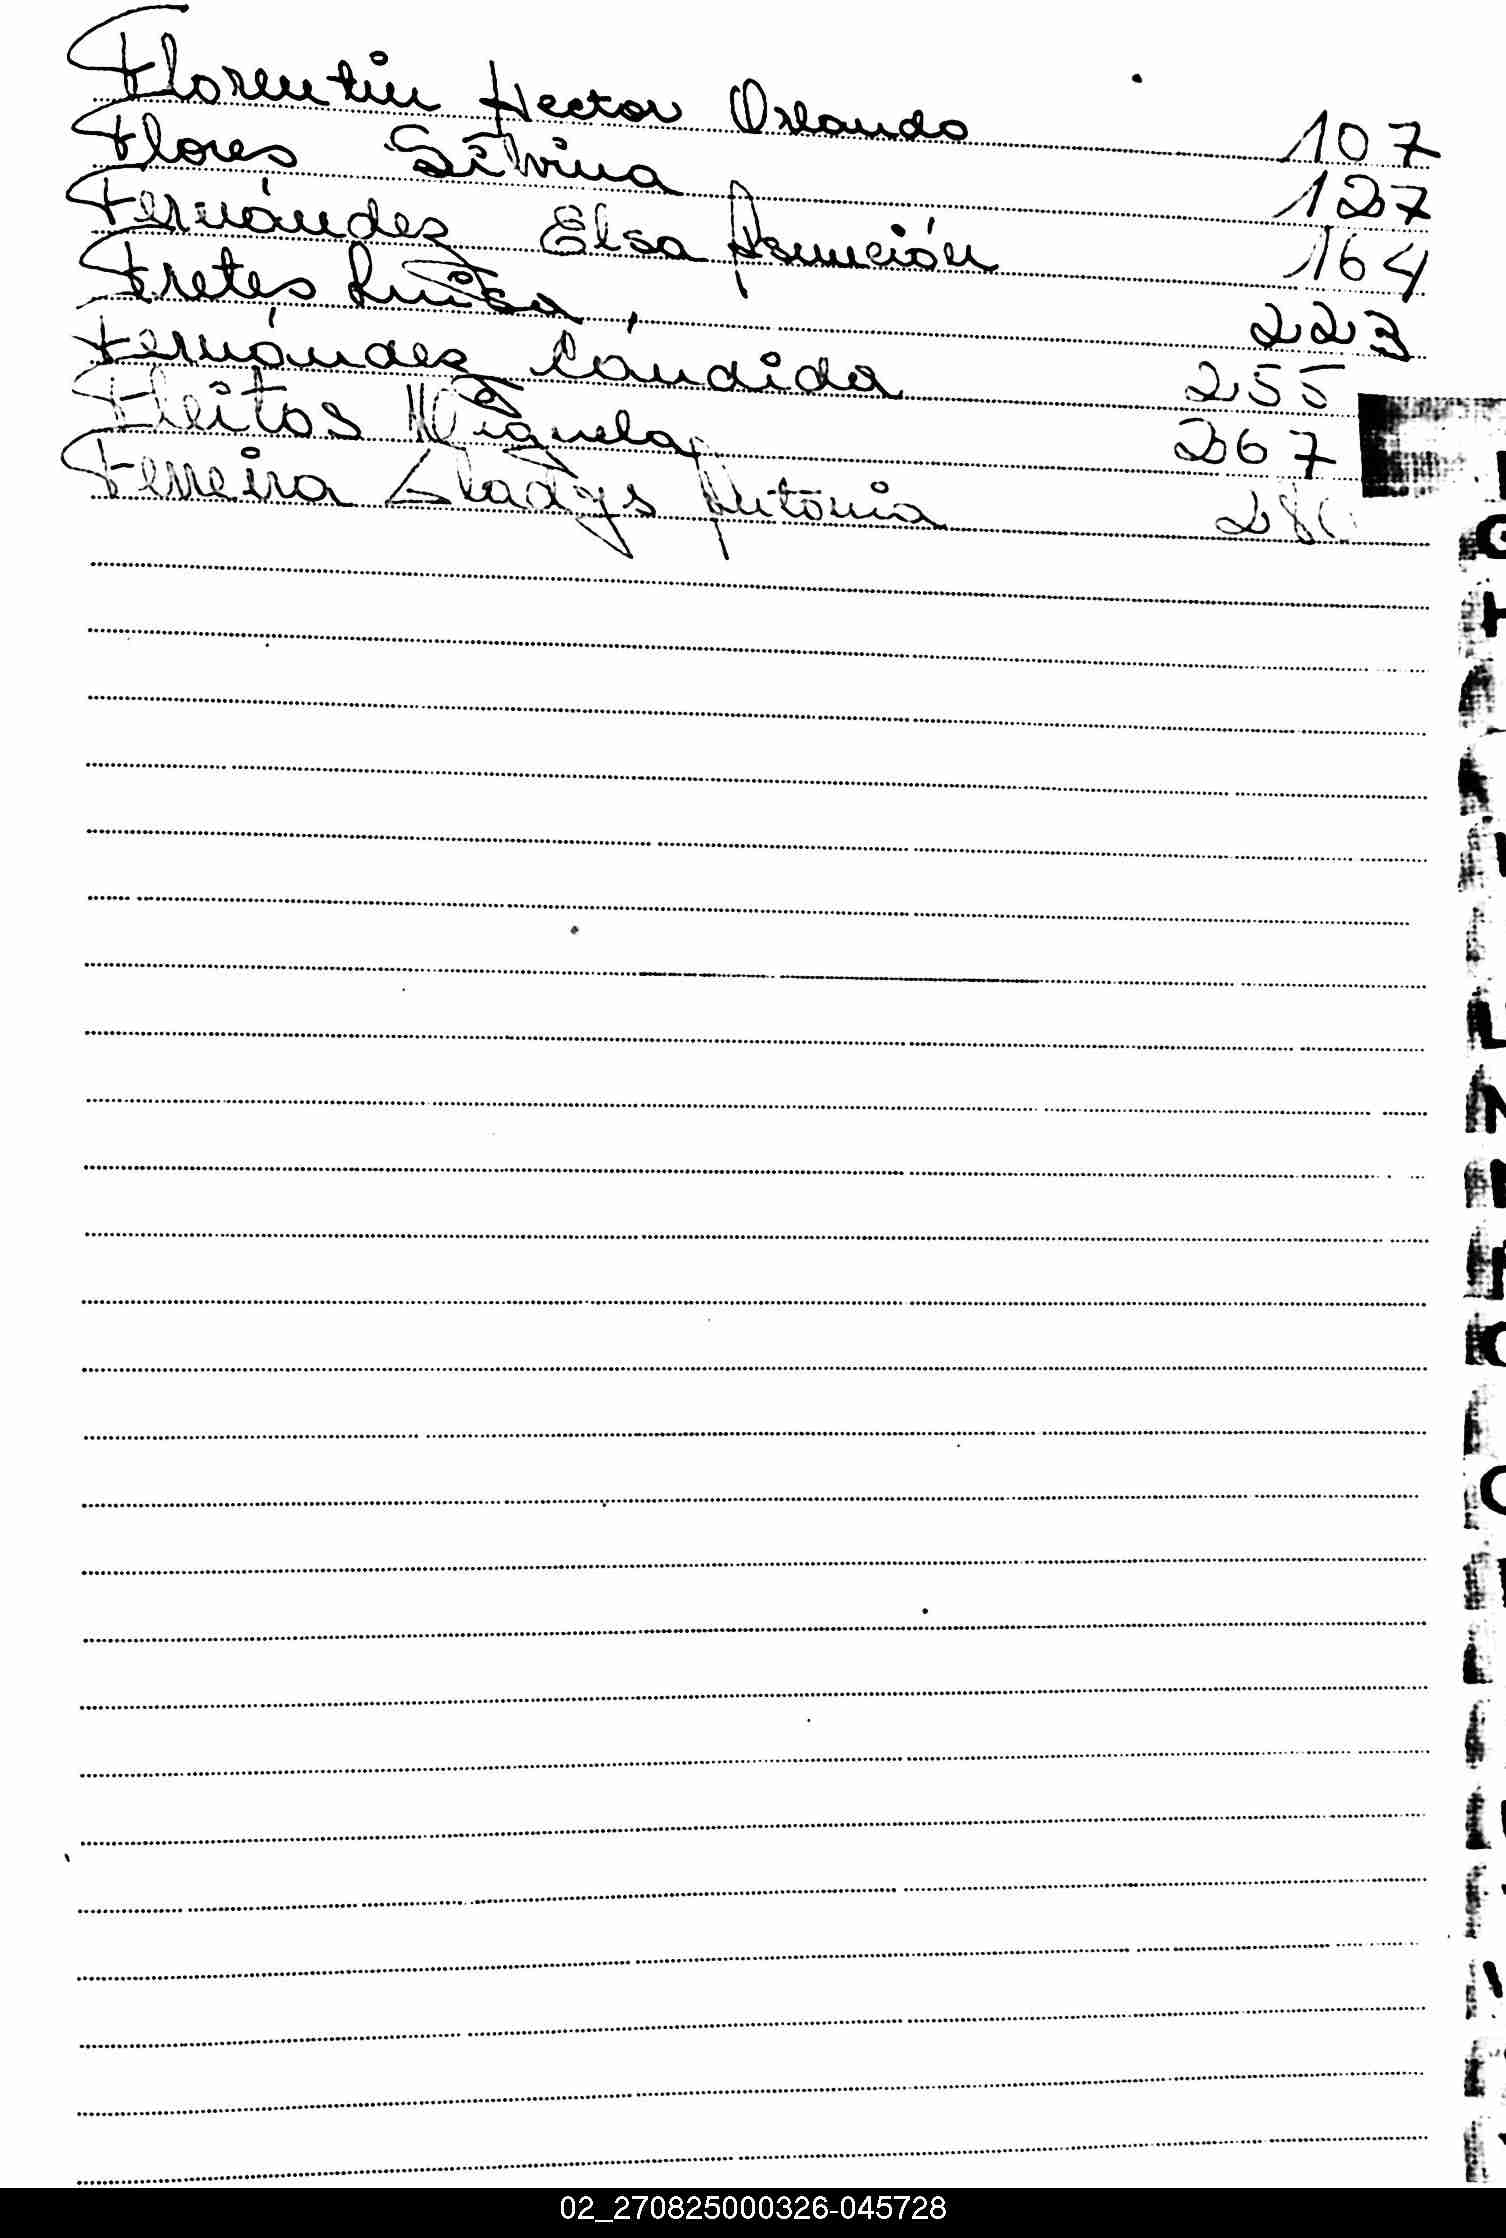 Florentin Hector Orlando 107
Flores Silvina 127
Fernández Elsa Asunción 164
Fretes Luisa, 223
Fernández Cándida 255
Fleitas Miguela 267
Ferreira Gladys Antonia
G
H
L
02_270825000326-045728